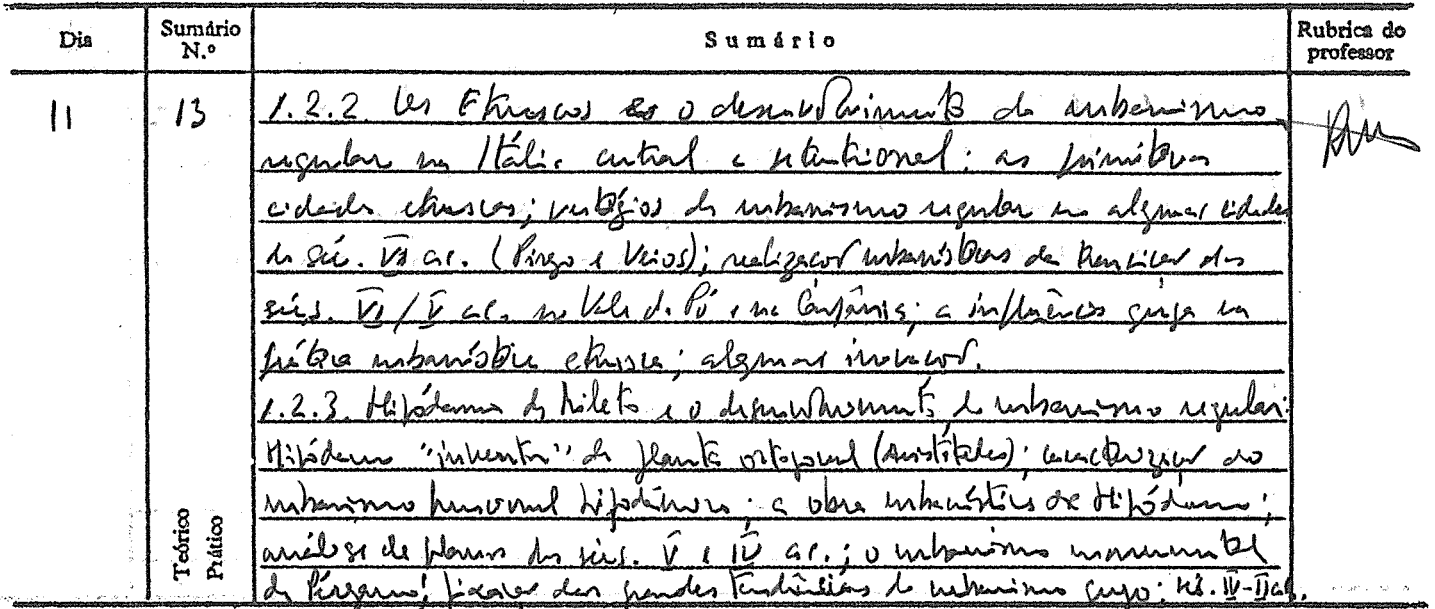 Dia
Sumário N.º
Sumário
Rubrica do professor
11
13
1.2.2. Os Etruscos e o desenvolvimento do urbanismo
regular na Itália central e setentrional: as primitivas
cidades etruscas; vestígios de urbanismo regular em algumas cidades
do séc. VI a.c. (Pirgo e Veios); realizações urbanísticas dos
sécs. VI/V a.c. no Vale do Pó e na Campânia; a influência grega na
prática urbanística etrusca; algumas inovações.
1.2.3. Hipódamo de Mileto e o desenvolvimento do urbanismo regular:
Hipódamo "inventor" da planta ortogonal (Aristóteles); caracterização do
urbanismo funcional hipodâmico; a obra urbanística de Hipódamo;
análise de planos dos sécs. V e IV a.c.; o urbanismo monumental
de Pérgamo; das grandes tendências do urbanismo grego: sécs. IV-II a.c.
Teórico
Prático